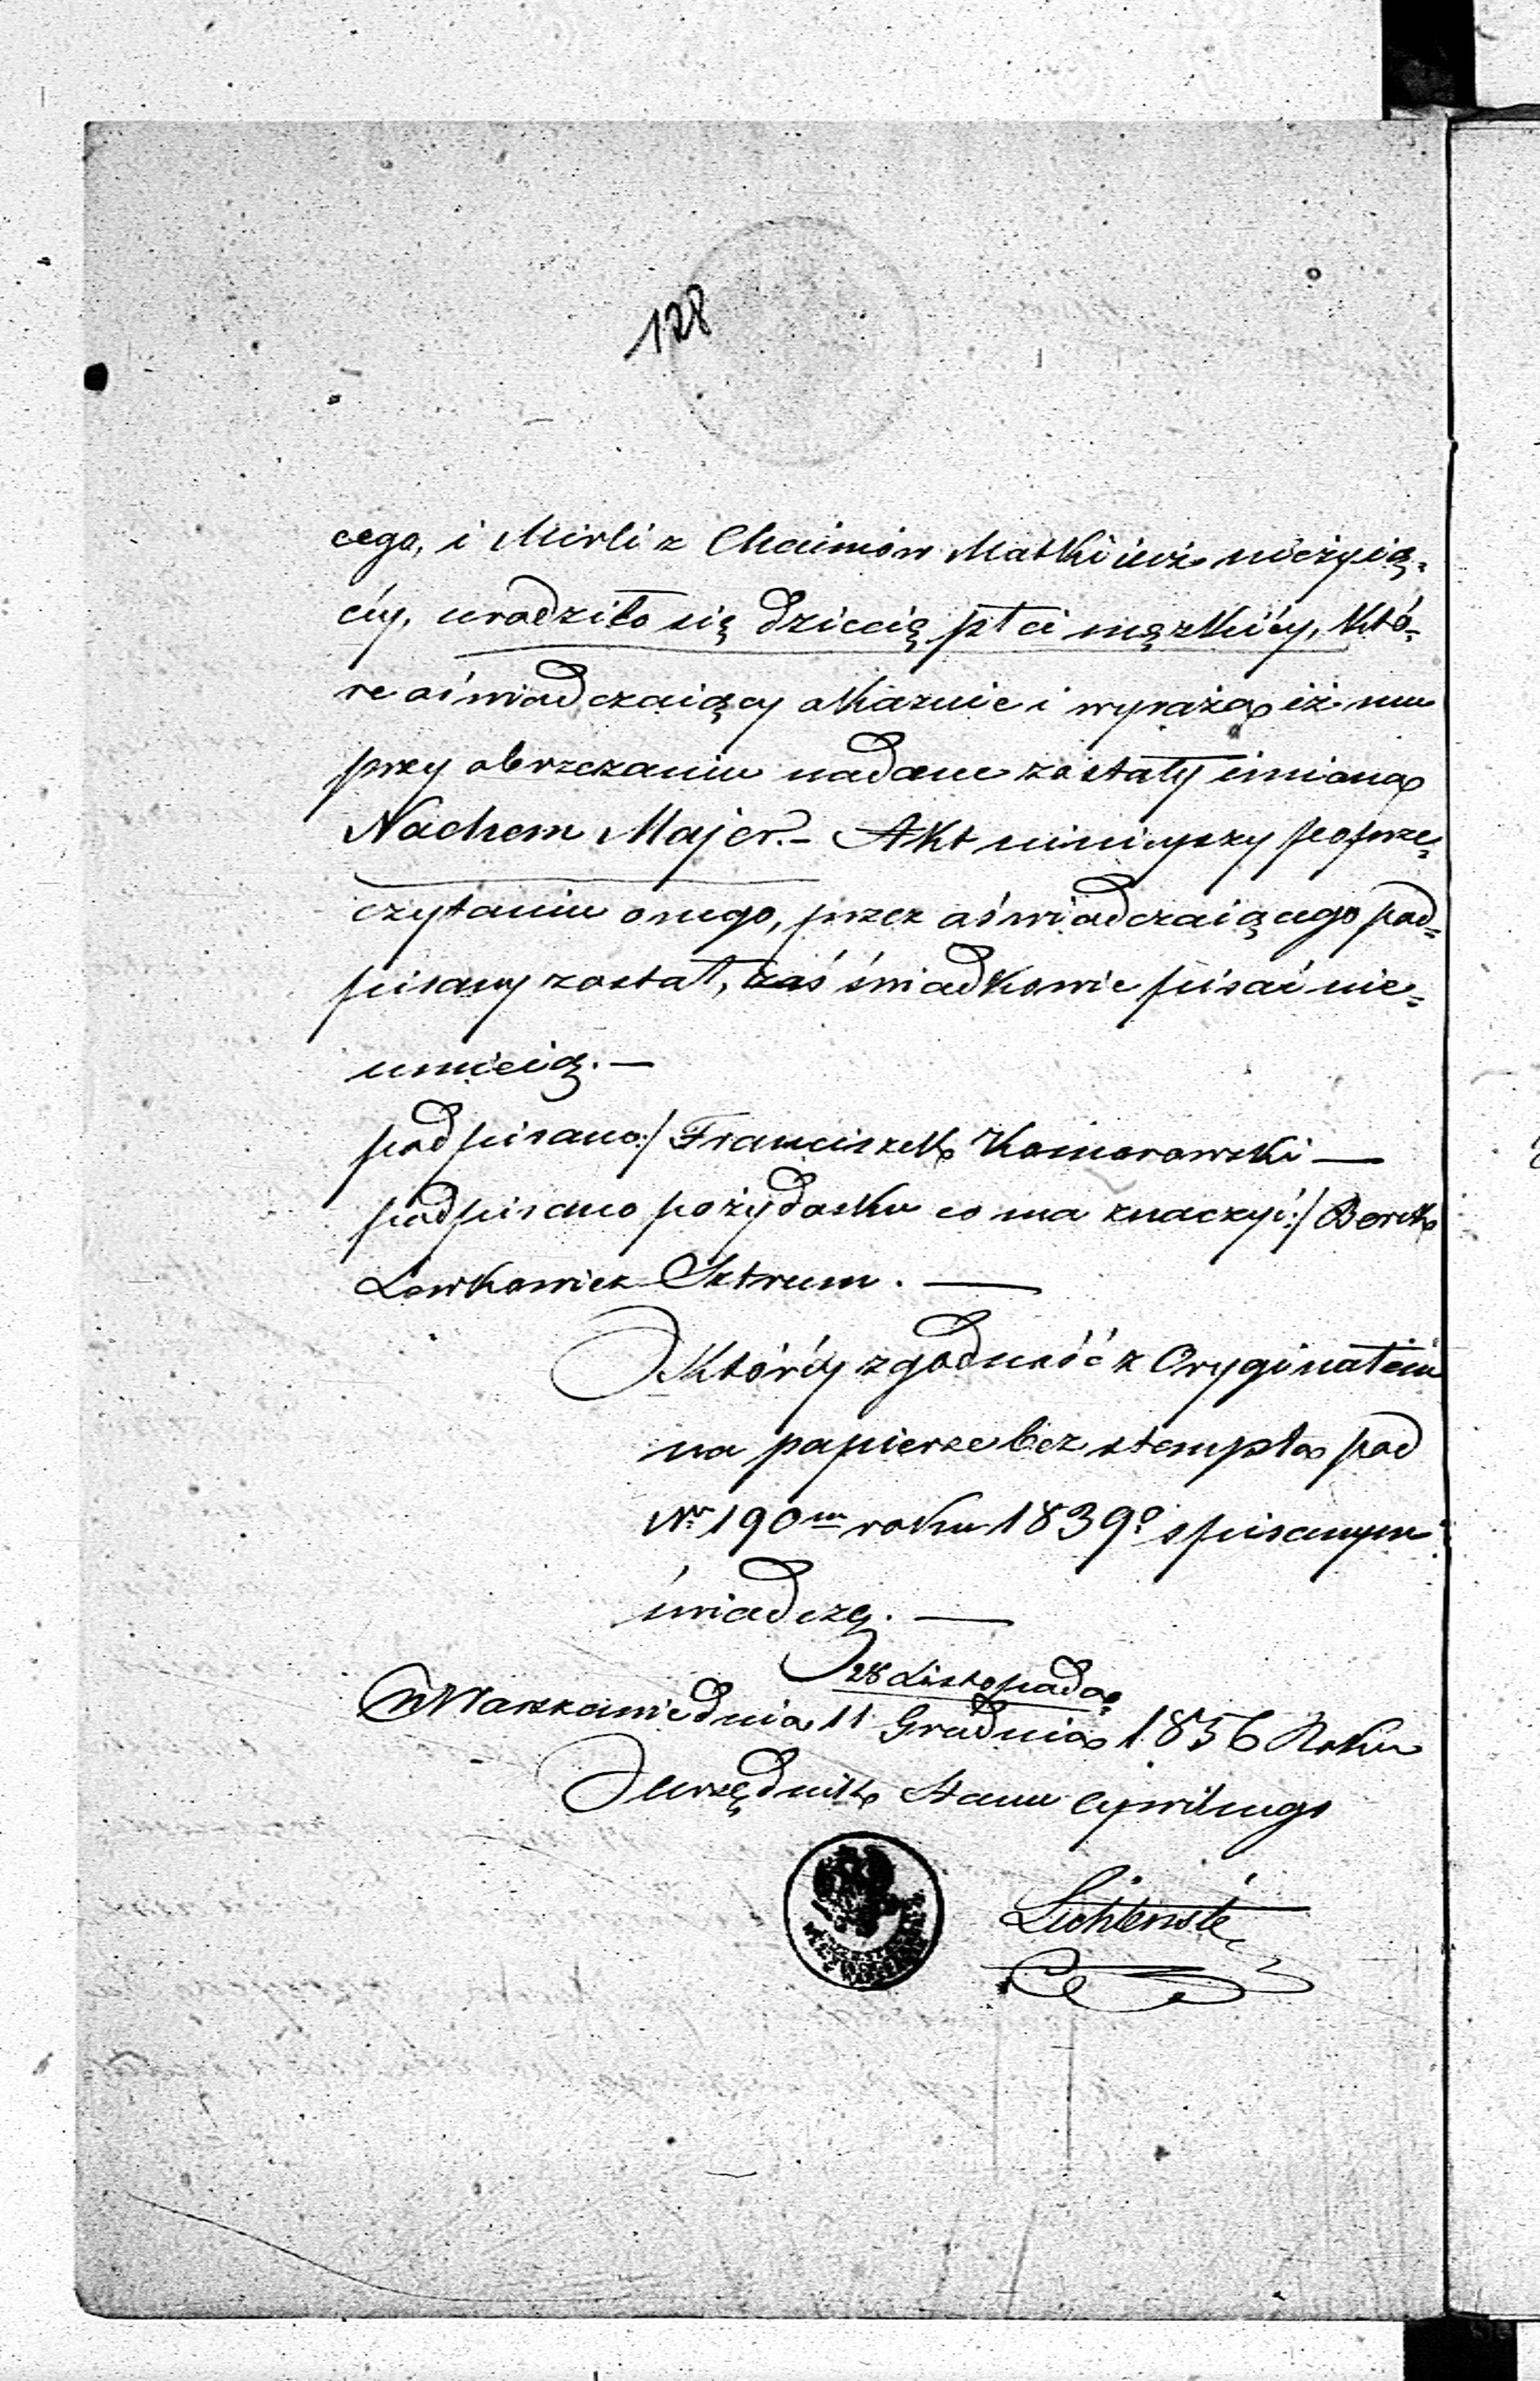 128
cego, i Mirli z Chaimów Matki iuż nieżyią=
céy, urodziło się dziecię płci męzkiéy, któ=
re oświadczaiący okazuie i wyraża iż mu
przy obrzezaniu nadane zostały imiona
Nachem Majer.– Akt ninieyszy po prze=
czytaniu onego, przez oświadczaiącego pod=
pisany został, zaś świadkowie pisać nie=
umieią.—
podpisano:/ Franciszek Komorowski —
podpisano po żydosku co ma znaczyć:/ Berek
Lewkowicz Sztrum. —
Któréy zgodność z Oryginałem
na papierze bez stempla pod
Nr 190m roku 1839o spisanym
świadczę. —
28 Listopada
w Warszawie dnia 11 Grudnia 1856 Roku
Urzędnik Stanu Cywilnego